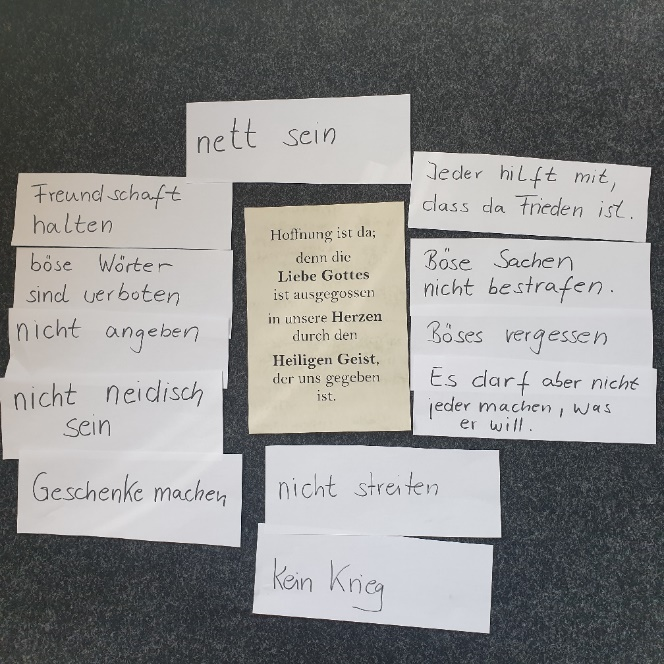 nett sein
Freundschaft
halten
böse Wörter
sind verboten
nicht angeben
nicht neidisch
sein
Geschenke machen
Hoffnung ist da;
denn die
Liebe Gottes
ist ausgegossen
in unsere Herzen
durch den
Heiligen Geist,
der uns gegeben
ist.
Jeder hilft mit,
dass da Frieden ist.
Böse Sachen
nicht bestrafen.
Böses vergessen
Es darf aber nicht
jeder machen, was
er will.
nicht streiten
Kein Krieg